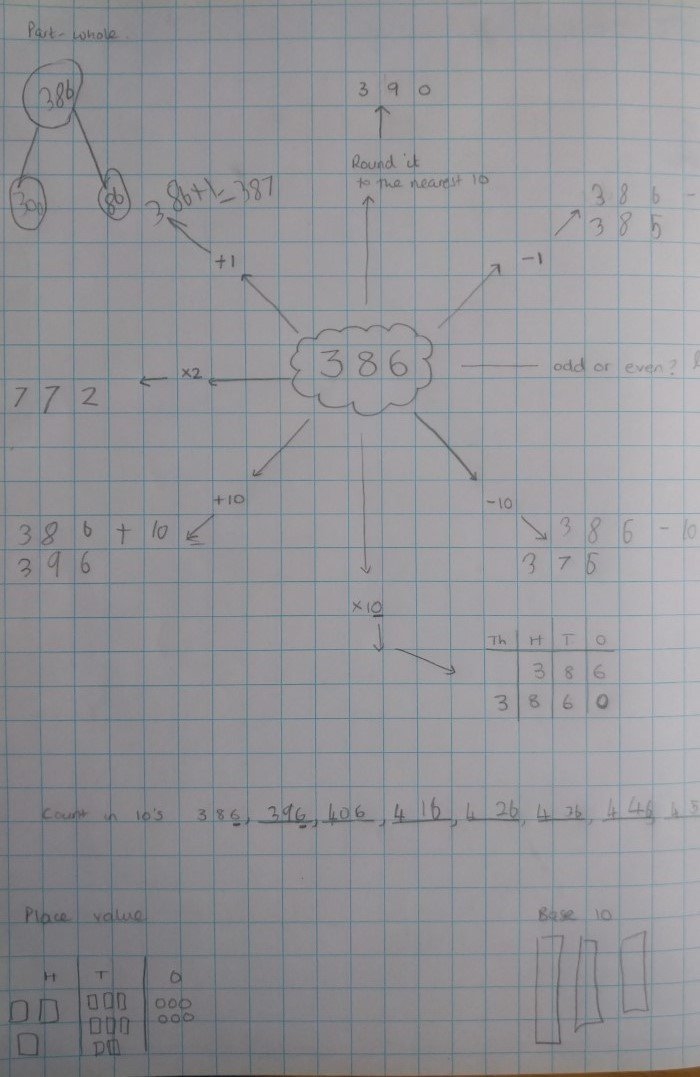 Part-whole.
386
300
86
3 9 0
Round it
to the nearest 10
386+1=387
+1
3 8 6 -
3 8 5
-1
386
odd or even?
x2
7 7 2
+10
3 8 6 + 10
3 9 6
-10
3 8 6 - 10
3 7 6
x10
Th H T O
3 8 6
3 8 6 0
Count in 10's 386, 396, 406, 416, 426, 426, 446
Place value
H T O
Base 10